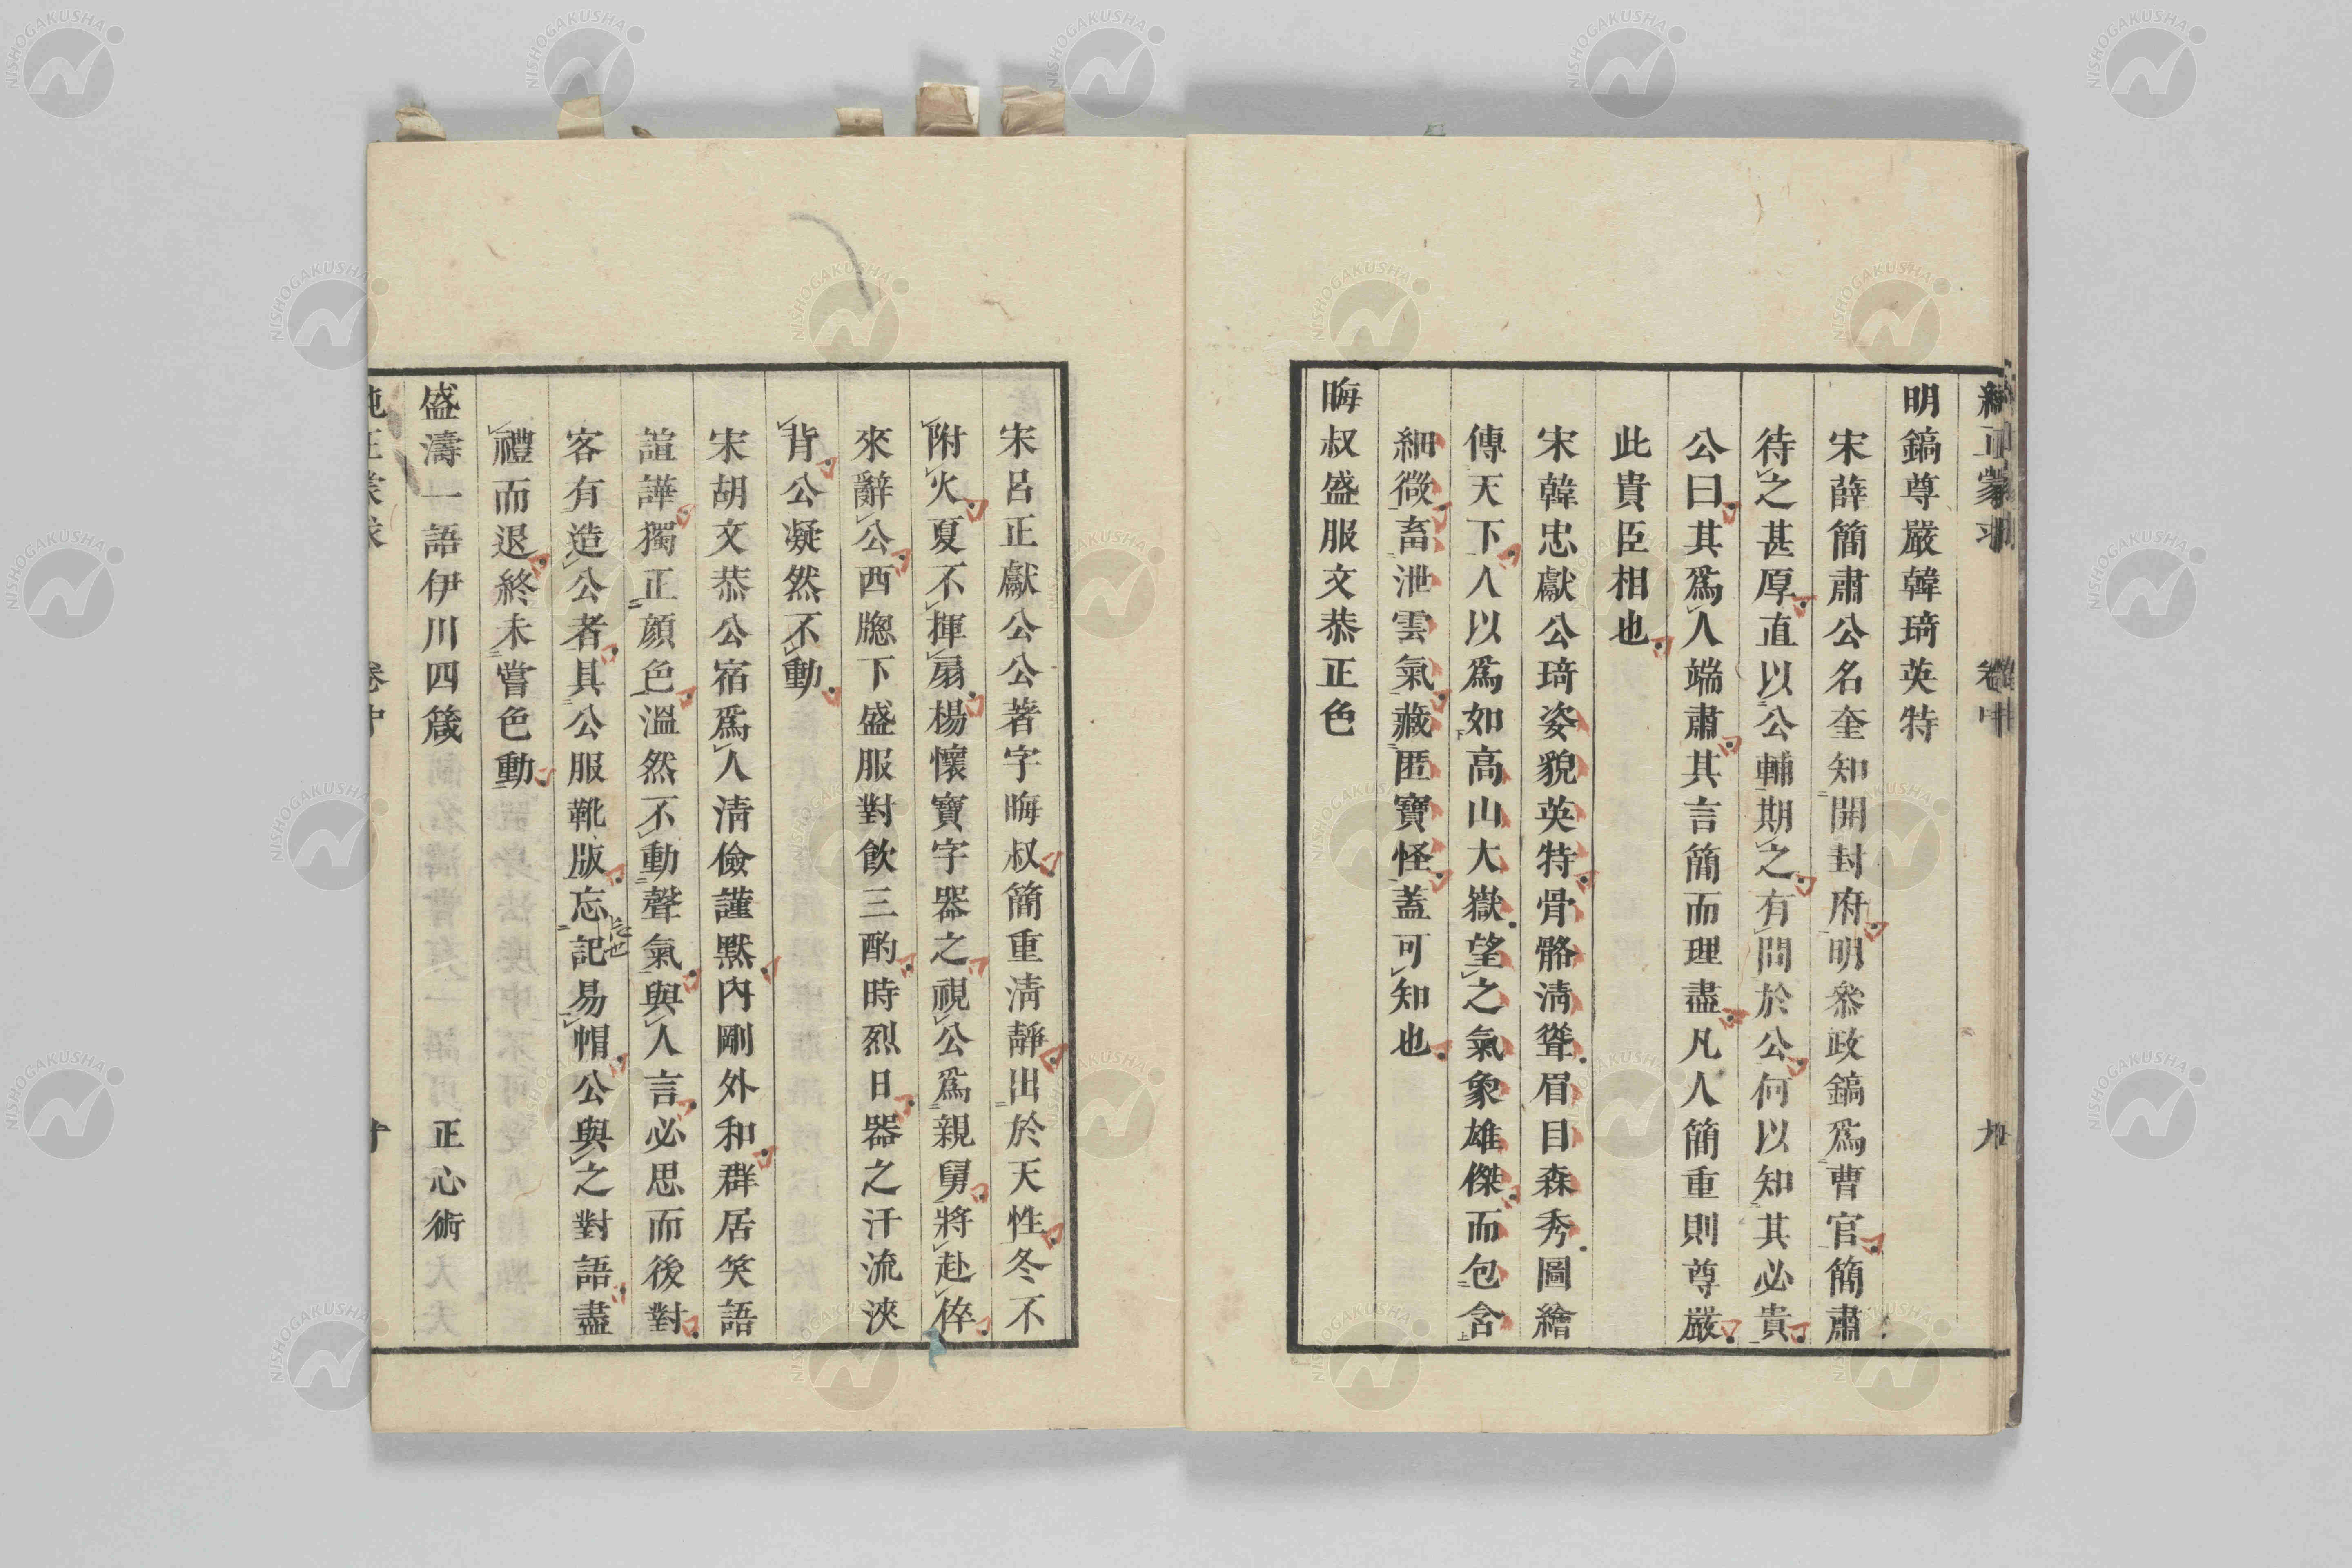 純正蒙求　卷中　九
明鎬尊嚴韓琦英特
宋薛簡肅公名奎知開封府明叅政鎬爲曹官簡肅
待之甚厚直以公輔期之有問於公何以知其必貴
公曰其爲人端肅其言簡而理盡凡人簡重則尊嚴
此貴臣相也
宋韓忠獻公琦姿貌英特骨骼淸聳眉目森秀圖繪
傳天下人以爲如高山大嶽望之氣象雄傑而包含
細微畜泄雲氣藏匿寶怪蓋可知也
晦叔盛服文恭正色
宋呂正獻公公著字晦叔簡重淸靜出於天性冬不
附火夏不揮扇楊懷寶字器之視公爲親舅將赴倅
來辭公西牕下盛服對飮三酌時烈日器之汗流浹
背公凝然不動
宋胡文恭公宿爲人淸儉謹默內剛外和群居笑語
諠譁獨正顏色溫然不動聲氣與人言必思而後對
客有造公者具公服靴版忘記易帽公與之對語盡
禮而退終未嘗色動
盛濤一語伊川四箴　正心術
純正蒙求　卷中　十